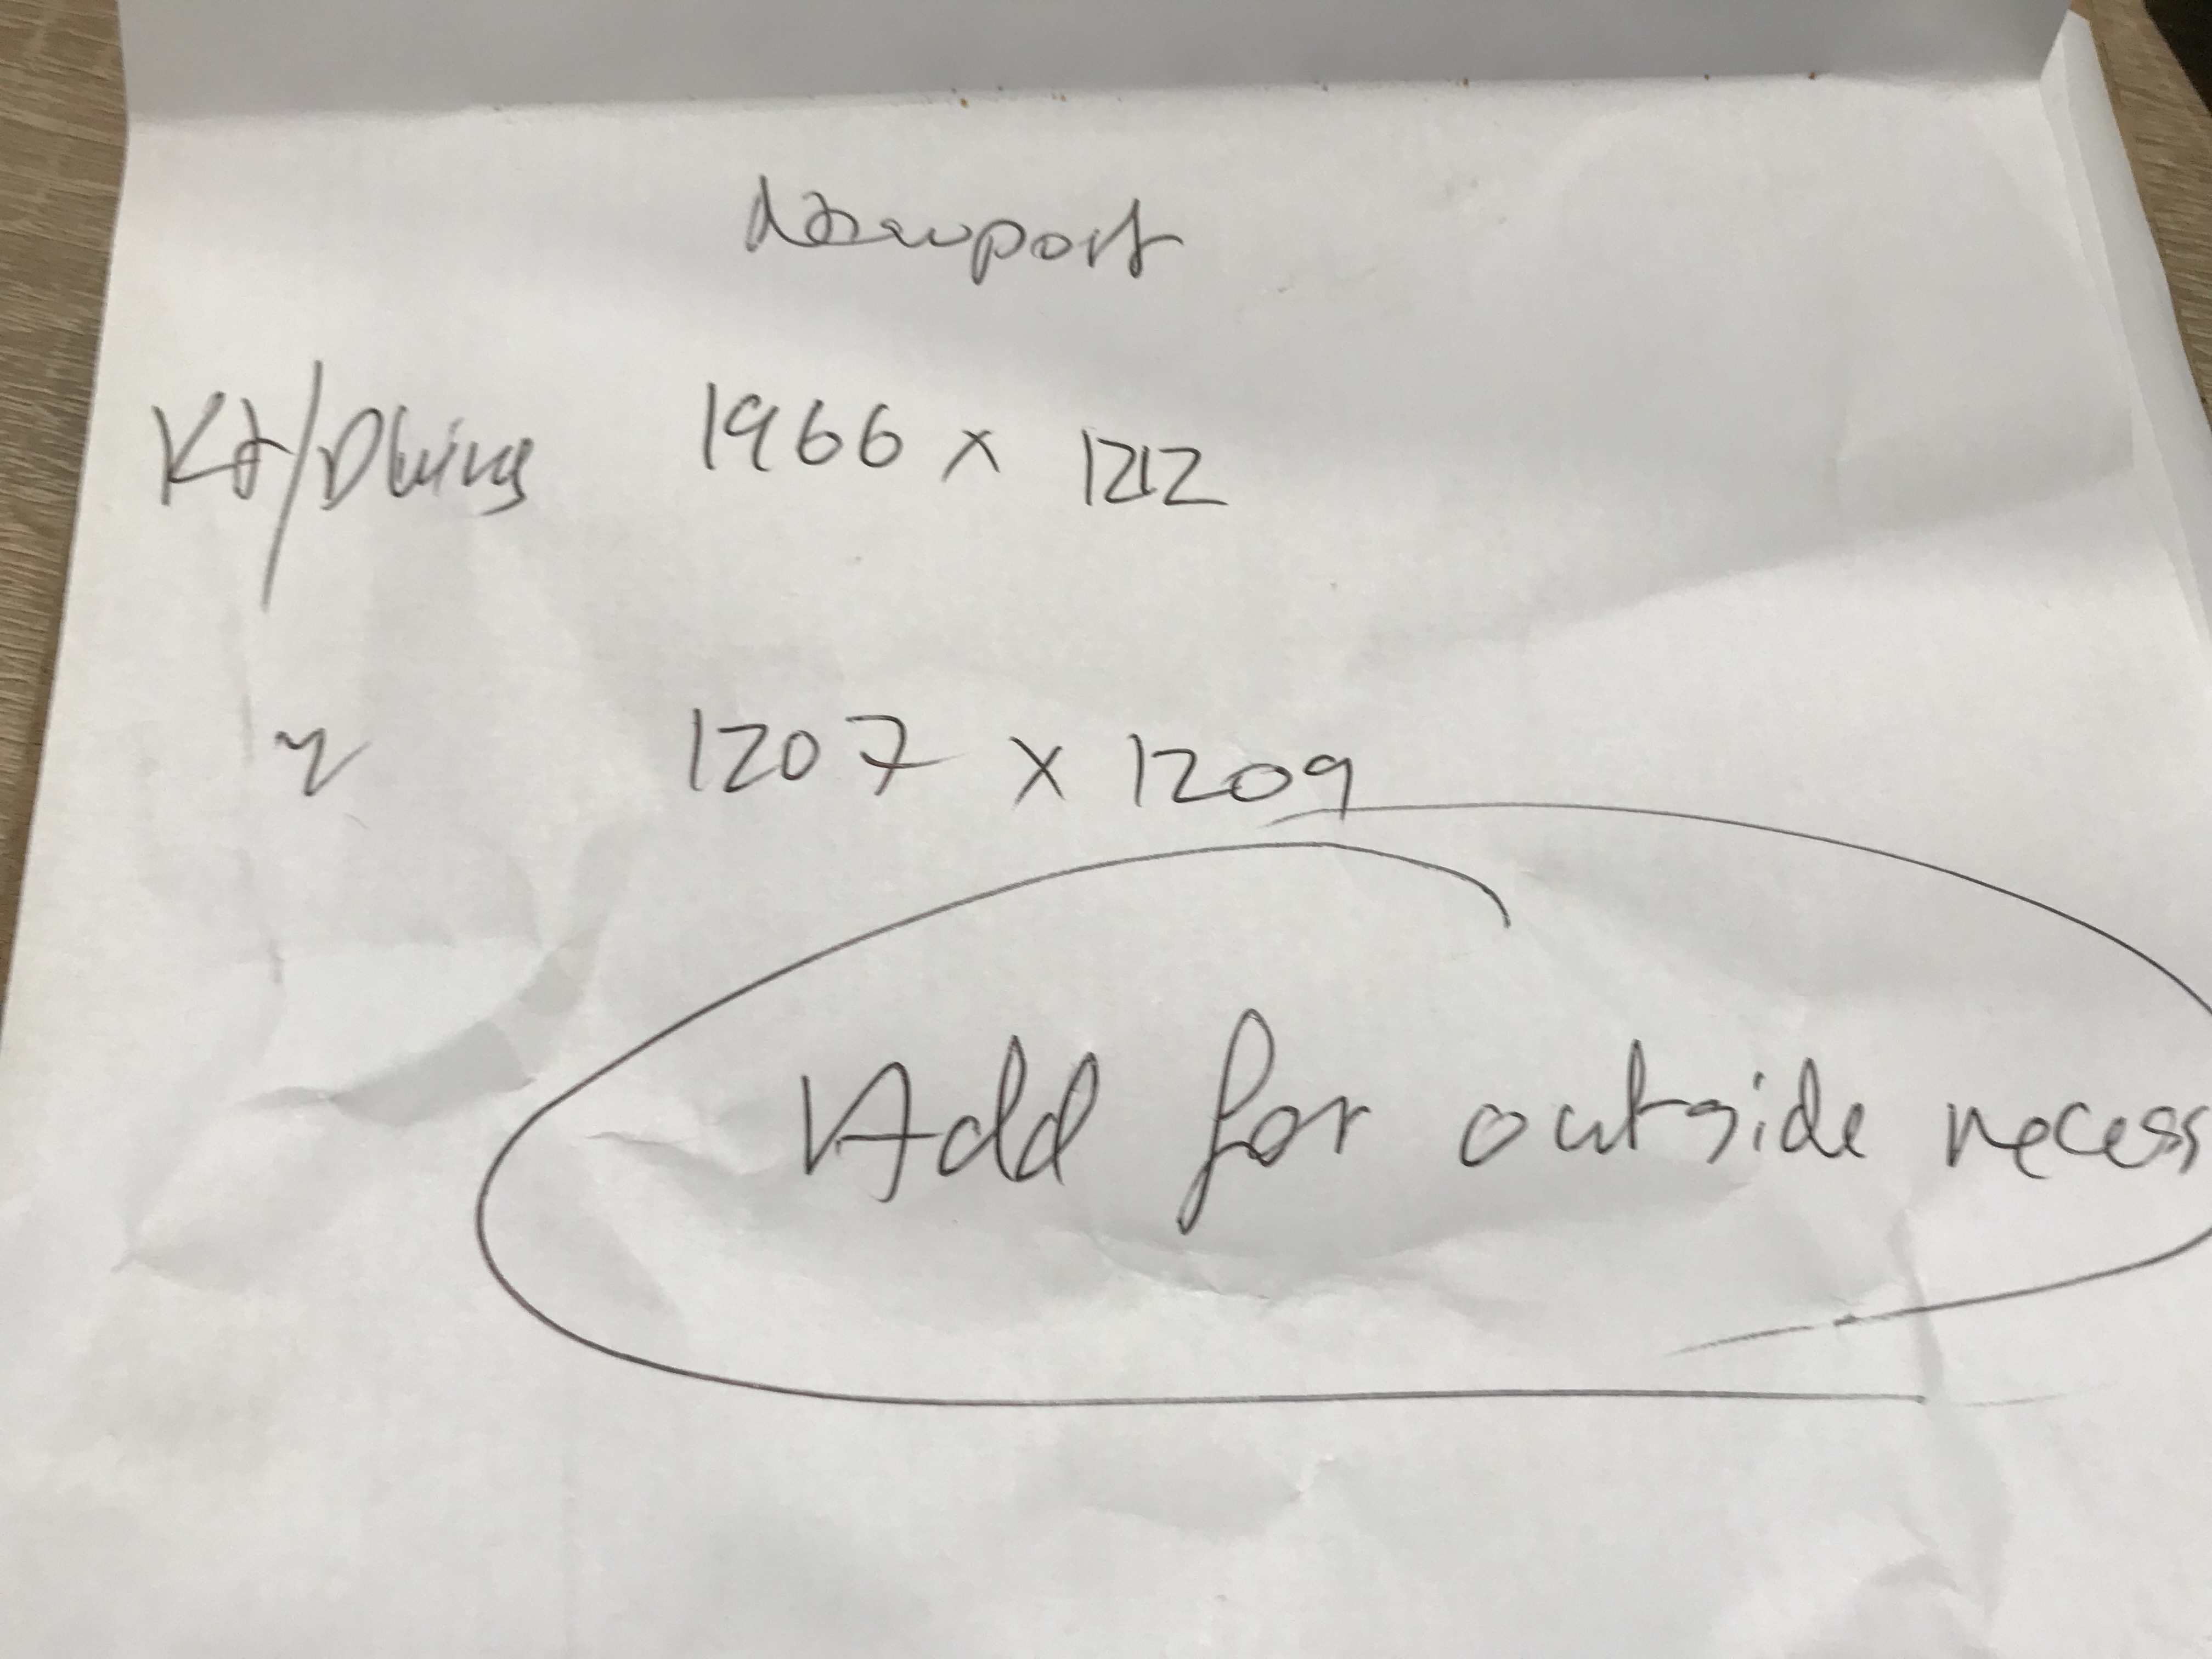 Newport
Kt/Dining 1966 x 1212
" 1207 x 1209
Add for outside recess